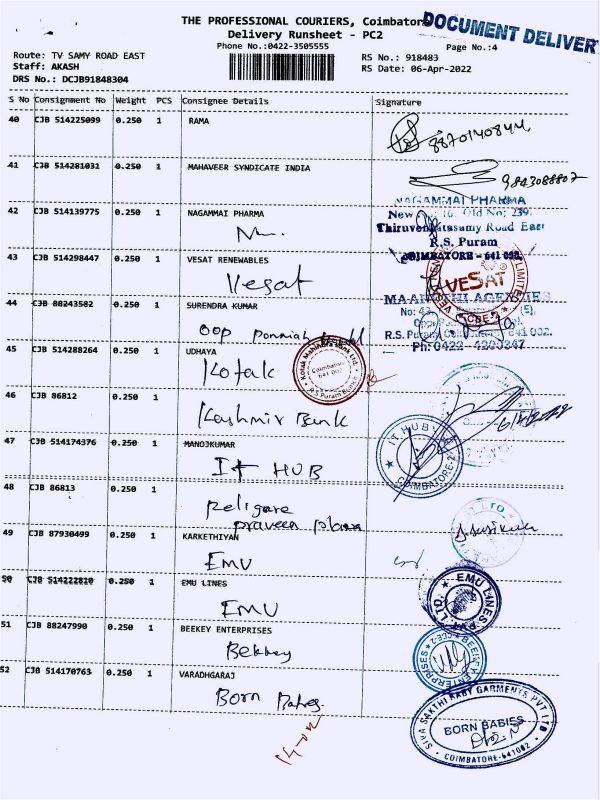 THE PROFESSIONAL COURIERS, Coimbatore
DOCUMENT DELIVER
Delivery Runsheet - PC2
Phone No.:0422-3505555
Page No.:4
Route: TV SAMY ROAD EAST
RS No.: 918483
Staff: AKASH
RS Date: 06-Apr-2022
DRS No.: DCJB91848304
S No Consignment No Weight PCS Consignee Details Signature
40 CJB 514225099 0.250 1 RAMA
8870140844
41 CJB 514281031 0.250 1 MAHAVEER SYNDICATE INDIA
9843088807
NAGAMMAI PHARMA
42 CJB 514139775 0.250 1 NAGAMMAI PHARMA
New 16, Old No; 239,
Thiruvenkatasamy Road East
R.S. Puram
COIMBATORE - 641 002.
43 CJB 514298447 0.250 1 VESAT RENEWABLES
Vesat
VESAT
CBE-2
44 CJB 88243582 0.250 1 SURENDRA KUMAR
MAARUTHI AGENCIES
No: 43
R.S. Puram, 641 002.
Ph: 0422
OOP
45 CJB 514288264 0.250 1 UDHAYA
Kotak
Kotak Mahindra Bank Ltd.
Coimbatore
641 002
R.S Puram Branch
46 CJB 86812 0.250 1
Kashmir Bank
47 CJB 514174376 0.250 1 MANOJKUMAR
IT HUB
IT HUB
COIMBATORE-2
48 CJB 86813 0.250 1
Religare
praveen plaza
49 CJB 87930499 0.250 1 KARKETHIYAN
EMU
50 CJB 514222810 0.250 1 EMU LINES
EMU
EMU LINES PVT. LTD.
51 CJB 88247990 0.250 1 BEEKEY ENTERPRISES
Bekkey
BEEKEY ENTERPRISES
52 CJB 514170763 0.250 1 VARADHGARAJ
Born Babies
SIVA SAKTHI BABY GARMENTS PVT LTD
BORN BABIES
COIMBATORE-641002